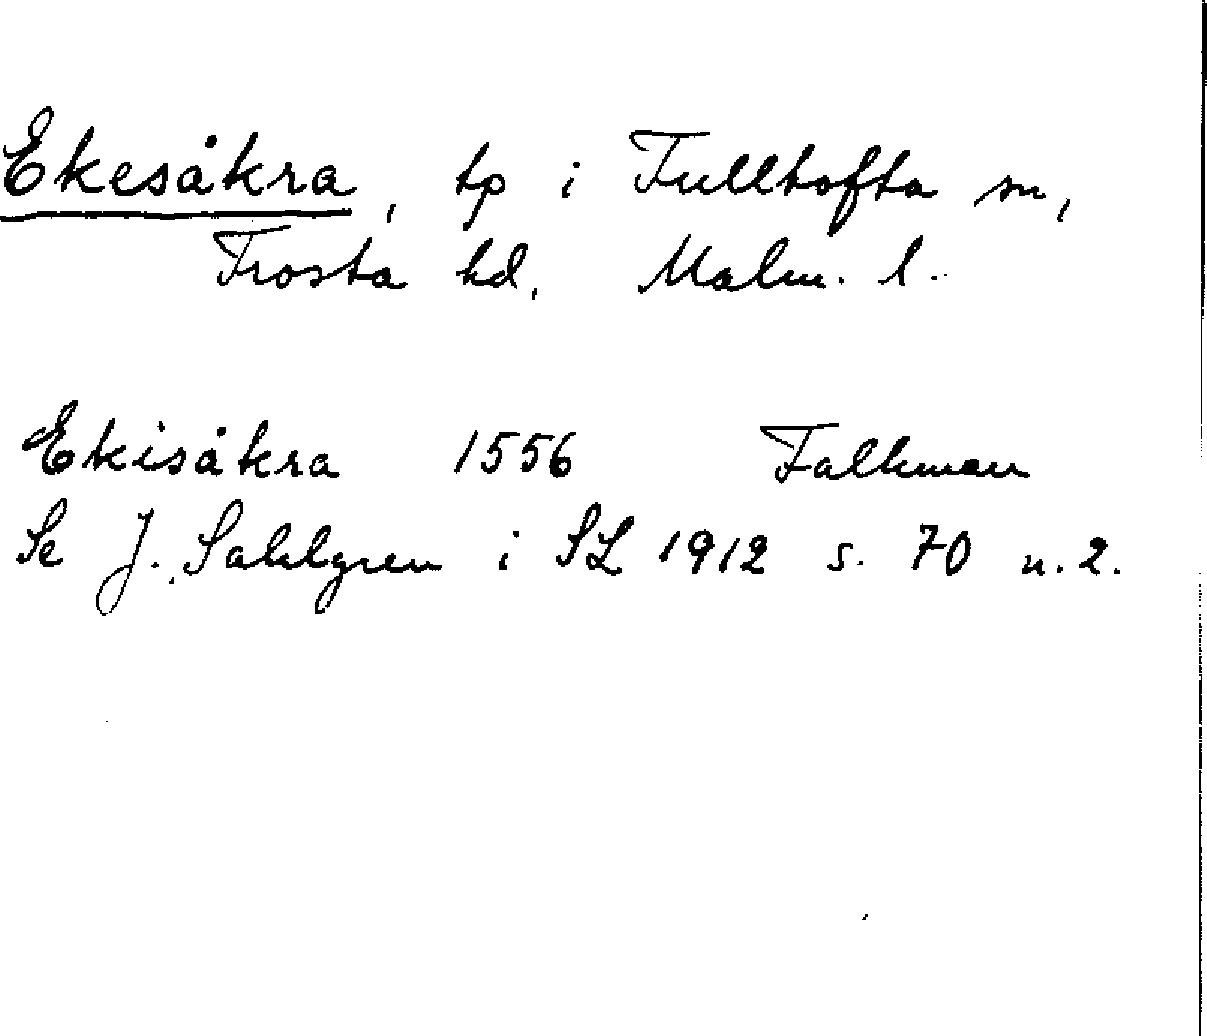 Ekesåkra, tp i Fulltofta sn,
Frosta hd, Malm. l.
Ekisåkra 1556 Falkman
Se J. Sahlgren i SL 1912 s. 70 n. 2.